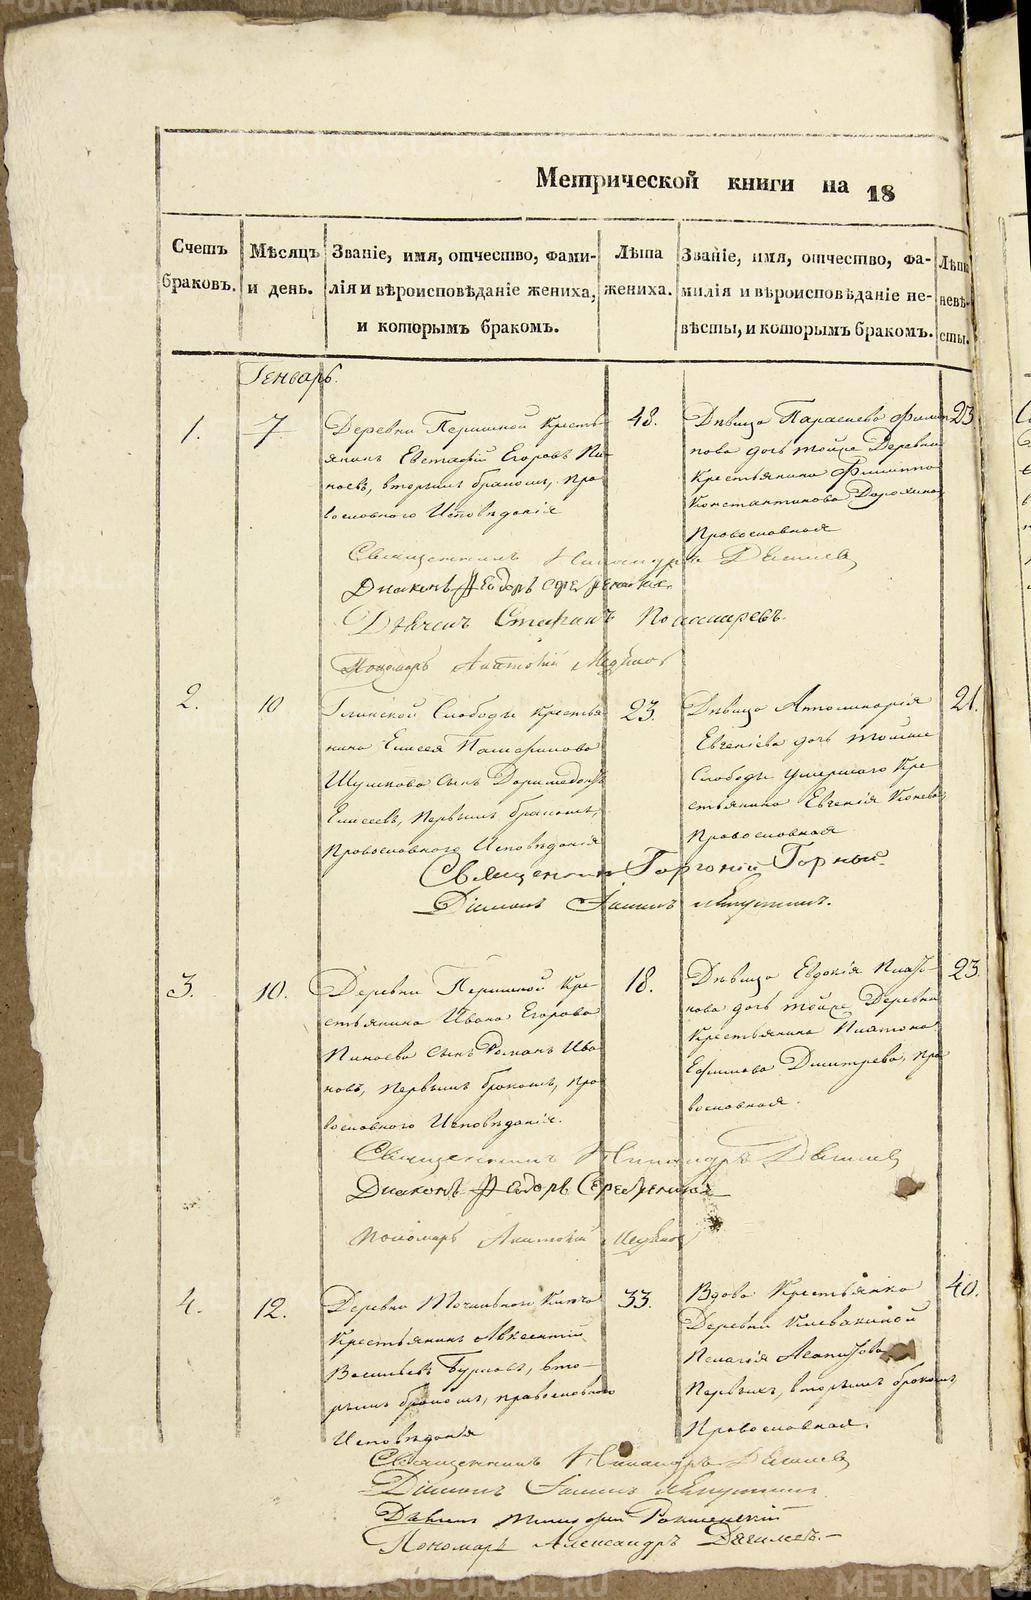 Метрической книги на 18
Счетъ браковъ.
Мѣсяцъ и день.
Званіе, имя, отчество, фами-
лія и вѣроисповѣданіе жениха,
и которымъ бракомъ.
Лѣта
жениха.
Званіе, имя, отчество, фа-
милія и вѣроисповѣданіе не-
вѣсты, и которымъ бракомъ.
Лѣта
невѣ-
сты.
Генварь.
1.
7
Деревни Першиной Кресть-
янинъ Евстафій Егоровъ Пи-
наевъ, вторымъ бракомъ, пра
вославнаго Исповѣданія
48.
Дѣвица Параскева Филип
пова дочь тойже Деревни
Крестьянина Филиппа
Константинова Дорохина
Православная
23
Священникъ Никандръ
Диаконъ Феодоръ Серебренниковъ
Дьячекъ Стефанъ Пономаревъ.
Пономарь
2.
10
Глинской Слободы Крестья
нина Елисея Памфилова
Шушкова сынъ Доримедонтъ
Елисеевъ, первымъ бракомъ,
Православнаго Исповѣданія
23.
Дѣвица Апполинарія
Евгеніева дочь тойже
Слободы умершаго Кре
стьянина Евгенія
Православная
21.
Священникъ Горгоній Горный
Діаконъ
3.
10.
Деревни Першиной Кре-
стьянина Ивана Егорова
Пинаева сынъ Романъ Ива
новъ, первымъ бракомъ, пра
вославнаго Исповѣданія.
18.
Дѣвица Евдокія Плато-
нова дочь тойже Деревни
Крестьянина Платона
Ефимова Дмитрева, пра
вославная.
23.
Священникъ Никандръ
Диаконъ Феодоръ Серебренниковъ
Пономарь
4.
12.
Деревни Точильнаго Ключа
Крестьянинъ Авксентій
Васильевъ Бурловъ, вто-
рымъ бракомъ, православнаго
Исповѣданія
33.
Вдова Крестьянка
Деревни Клевакиной
Пелагія
вторымъ бракомъ
Православная.
40.
Священникъ Никандръ
Діаконъ
Пономарь Александръ
METRIKI.GASO-URAL.RU